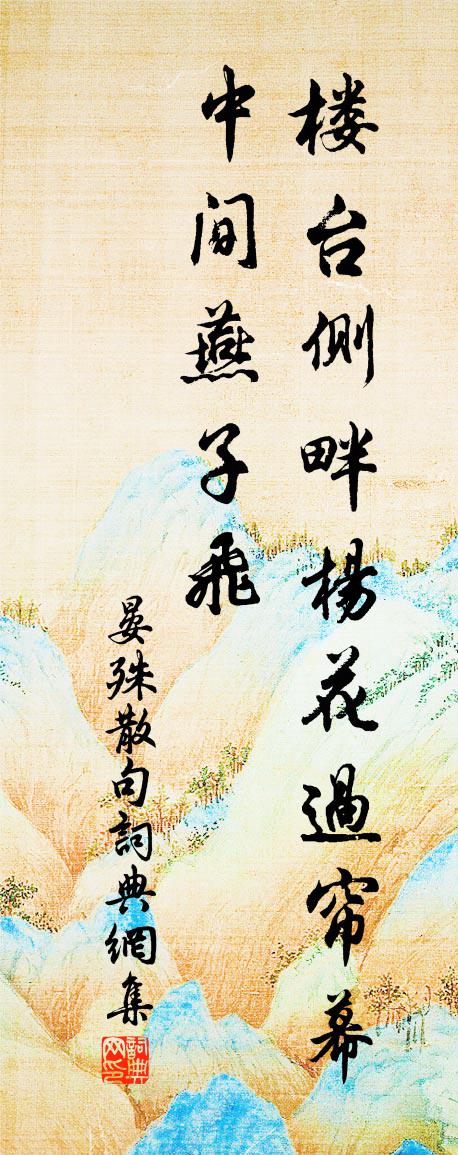 楼台侧畔楊花過帘幕
中间燕子飛
晏殊散句詞典網集
詞典网印